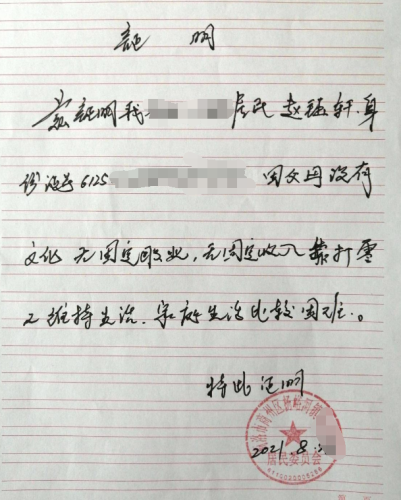 証明
兹証明我 居民 赵 轩.身
份证号6125 因父母没有
文化 无固定职业,无固定收入靠打零
工维持生活.家庭生活比较困难。
特此证明
居民委员会
2021.8.